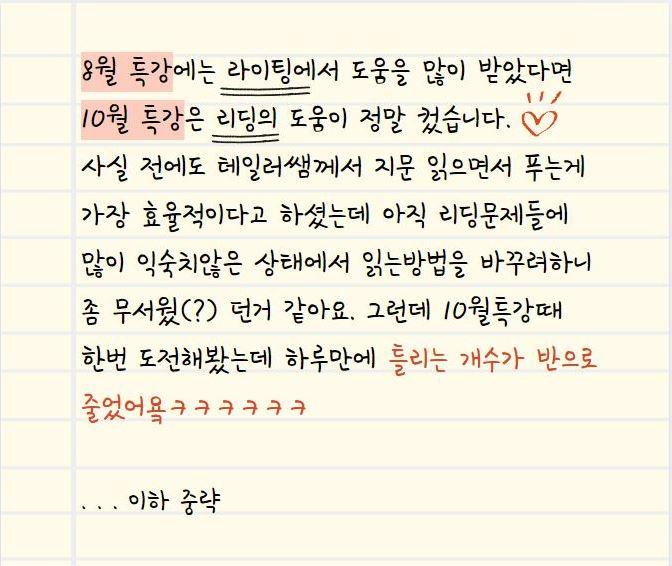 8월 특강에는 라이팅에서 도움을 많이 받았다면
10월 특강은 리딩의 도움이 정말 컸습니다.
사실 전에도 테일러쌤께서 지문 읽으면서 푸는게
가장 효율적이다고 하셨는데 아직 리딩문제들에
많이 익숙치않은 상태에서 읽는방법을 바꾸려하니
좀 무서웠(?) 던거 같아요. 그런데 10월특강때
한번 도전해봤는데 하루만에 틀리는 개수가 반으로
줄었어욬ㅋㅋㅋㅋㅋㅋ
. . . 이하 중략